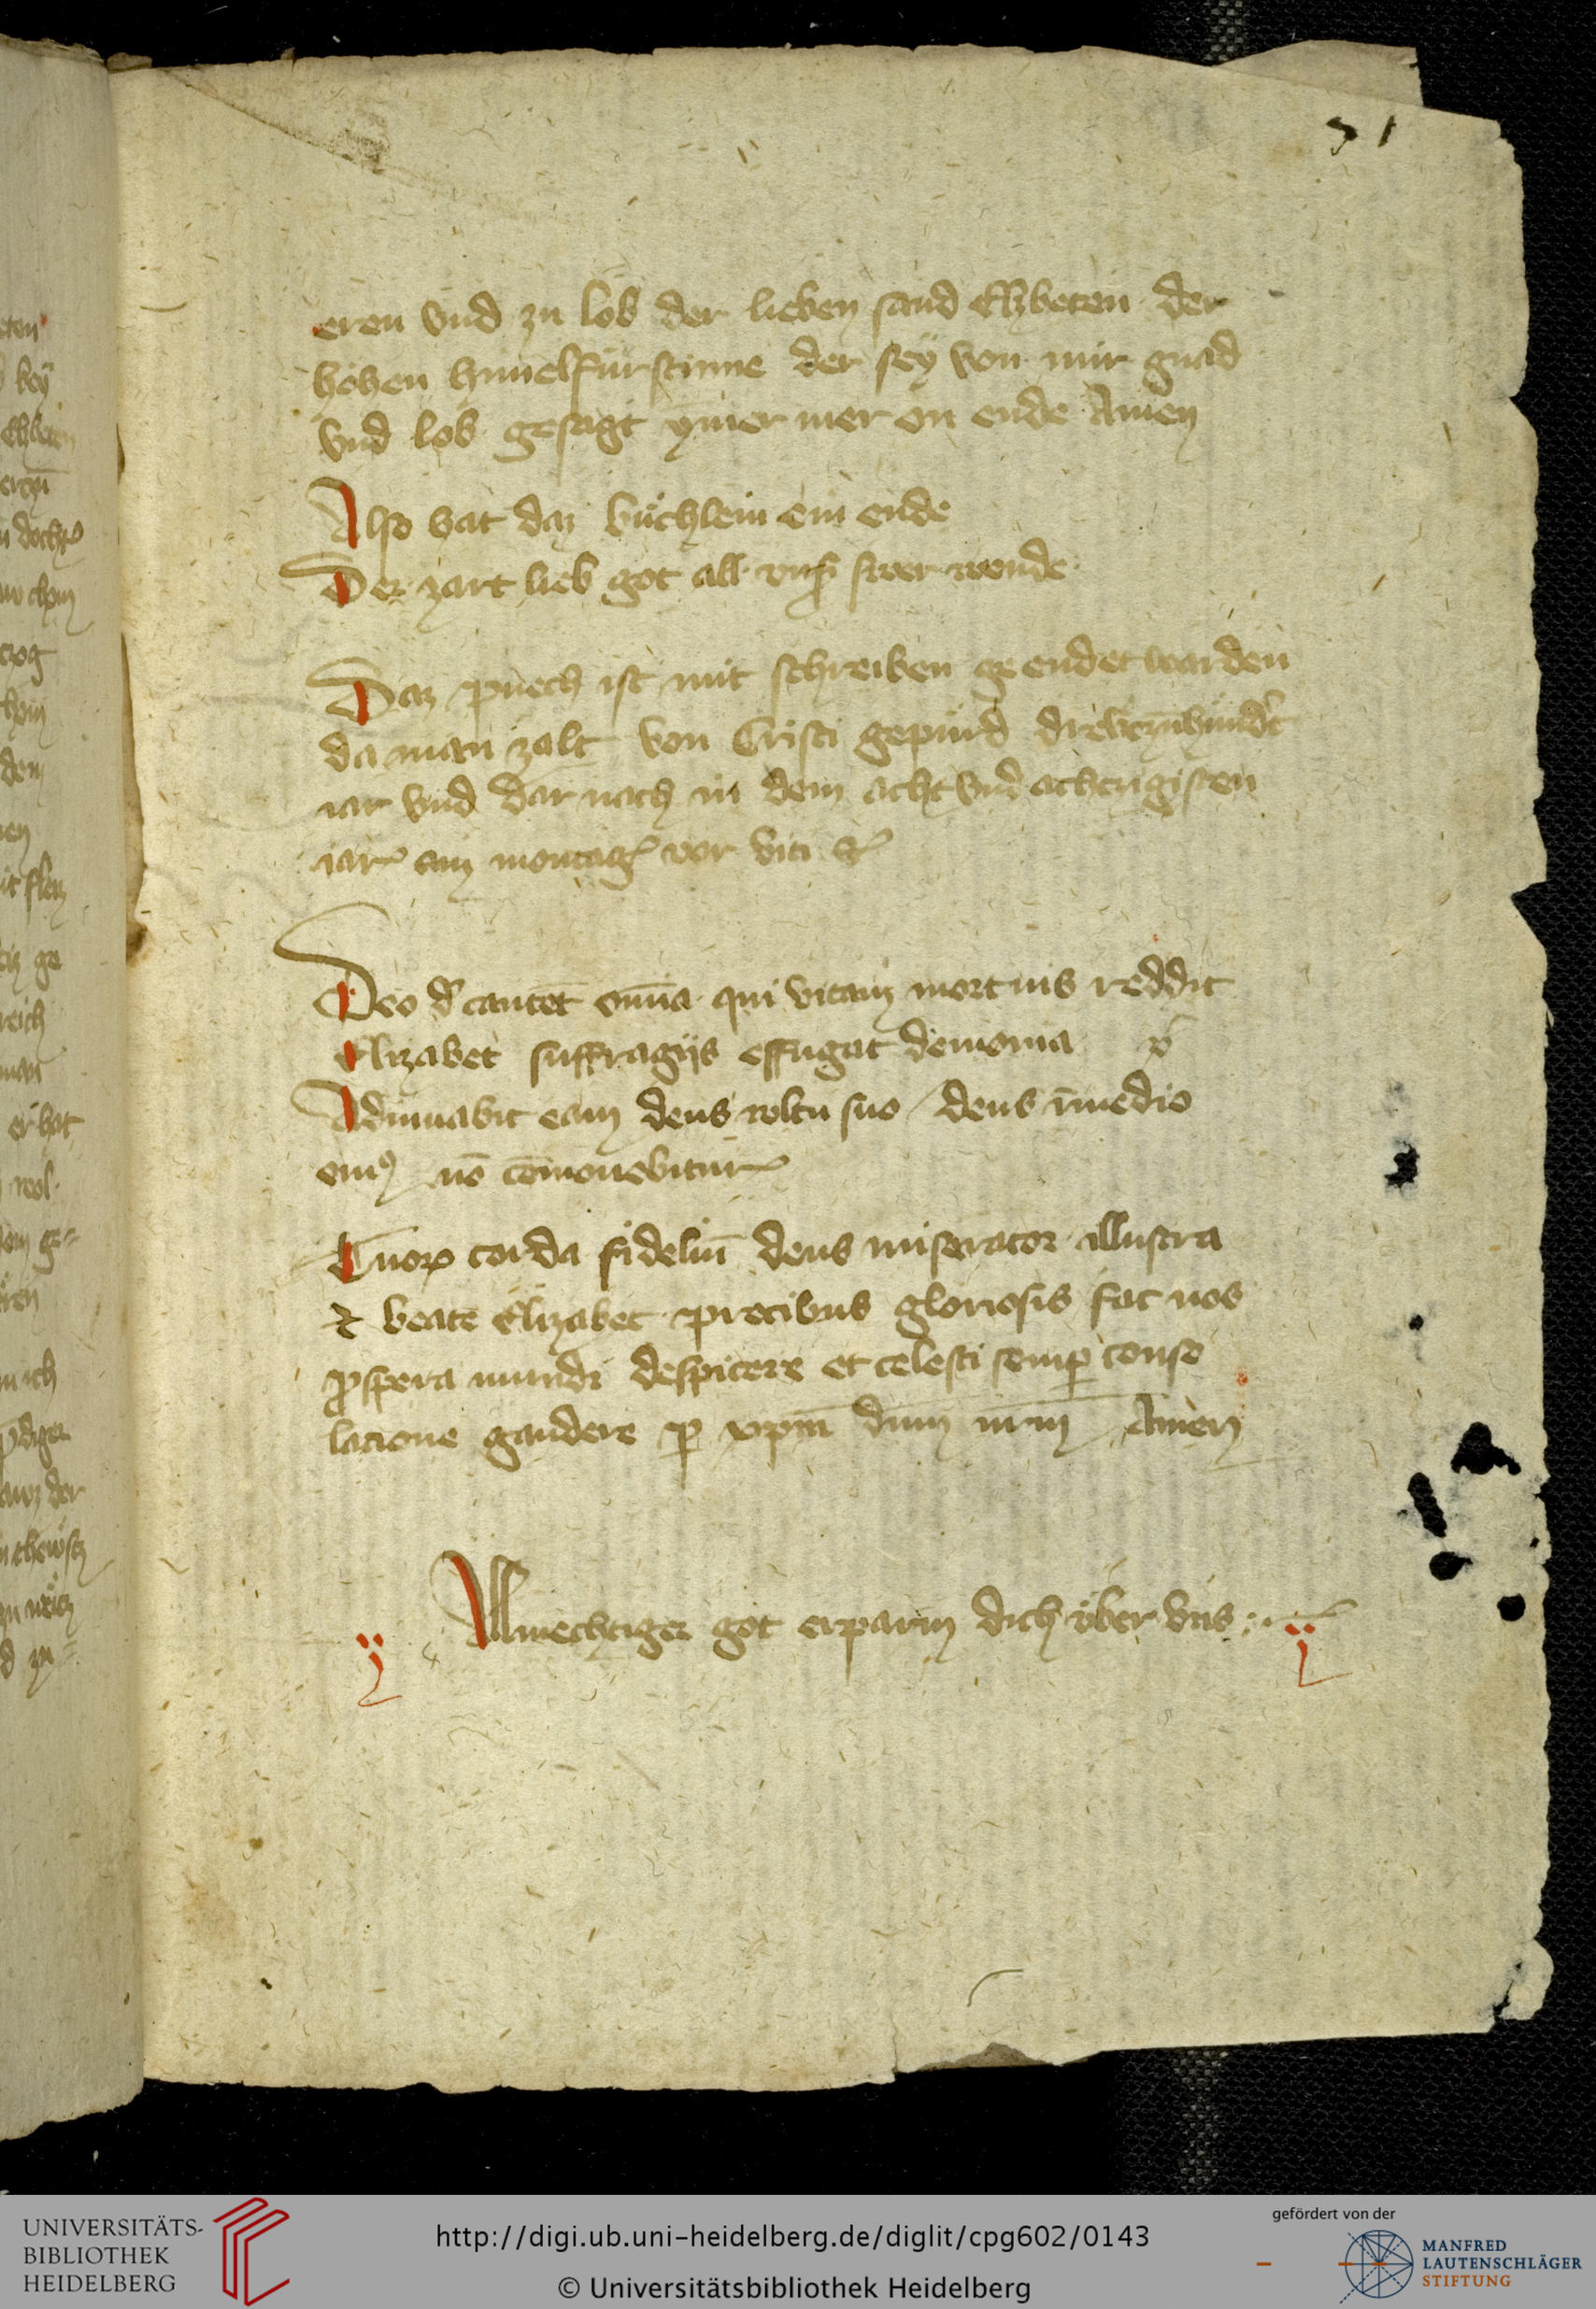 71
eren vnd zu lob der lieben sand Elzbeten der
hohen himelfürstinne der sey von mir gnad
vnd lob gesagt ymer mer on ende Amen
Also hat daz büchlein ein ende
Der zart lieb got all vnß swer wende
Daz puech ist mit schreiben geendet warden
da man zalt von Cristi gepürd
iar vnd dar nach in dem acht vnd achtzigisten
iar am montag vor viti
Deo decantet om̄ia qui vitam mortuis reddit
Elizabet suffragijs effugat demonia
Adiuuabit eam deus voltu suo deus ī medio
eiuꝰ nō cōmouebitur
Tuoꝝ corda fideliū deus miserator illustra
et beate Elizabet precibus gloriosis fac nos
ꝓspera mundi despicere et celesti semꝑ conso
lacione gaudere ꝑ xp̄m dn̄m nr̄m Amen
Allmechtiger got erparm dich vber vns
UNIVERSITÄTS-
BIBLIOTHEK
HEIDELBERG
http://digi.ub.uni-heidelberg.de/diglit/cpg602/0143
© Universitätsbibliothek Heidelberg
gefördert von der
MANFRED
LAUTENSCHLÄGER
STIFTUNG